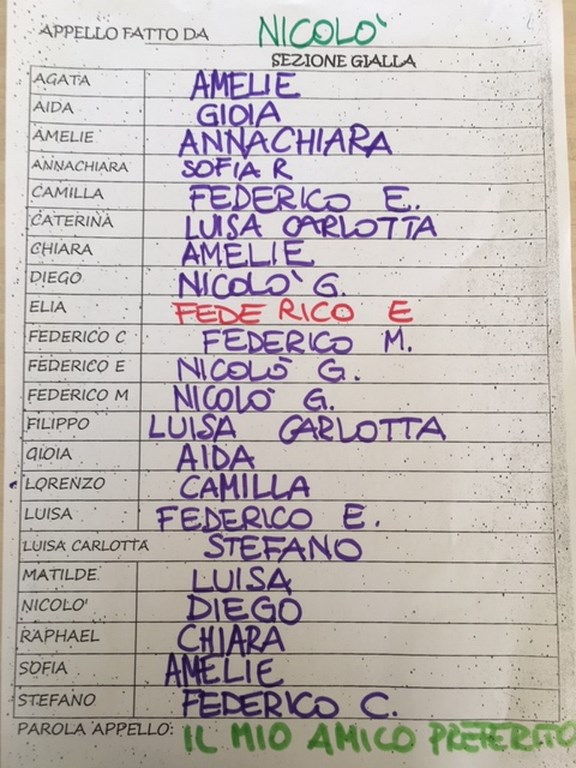 APPELLO FATTO DA NICOLO'
SEZIONE GIALLA
AGATA AMELIE
AIDA GIOIA
AMELIE ANNACHIARA
ANNACHIARA SOFIA R
CAMILLA FEDERICO E.
CATERINA LUISA CARLOTTA
CHIARA AMELIE
DIEGO NICOLO' G.
ELIA FEDERICO E
FEDERICO C FEDERICO M.
FEDERICO E NICOLO' G.
FEDERICO M NICOLO' G.
FILIPPO LUISA CARLOTTA
GIOIA AIDA
LORENZO CAMILLA
LUISA FEDERICO E.
LUISA CARLOTTA STEFANO
MATILDE LUISA
NICOLO' DIEGO
RAPHAEL CHIARA
SOFIA AMELIE
STEFANO FEDERICO C.
PAROLA APPELLO: IL MIO AMICO PREFERITO